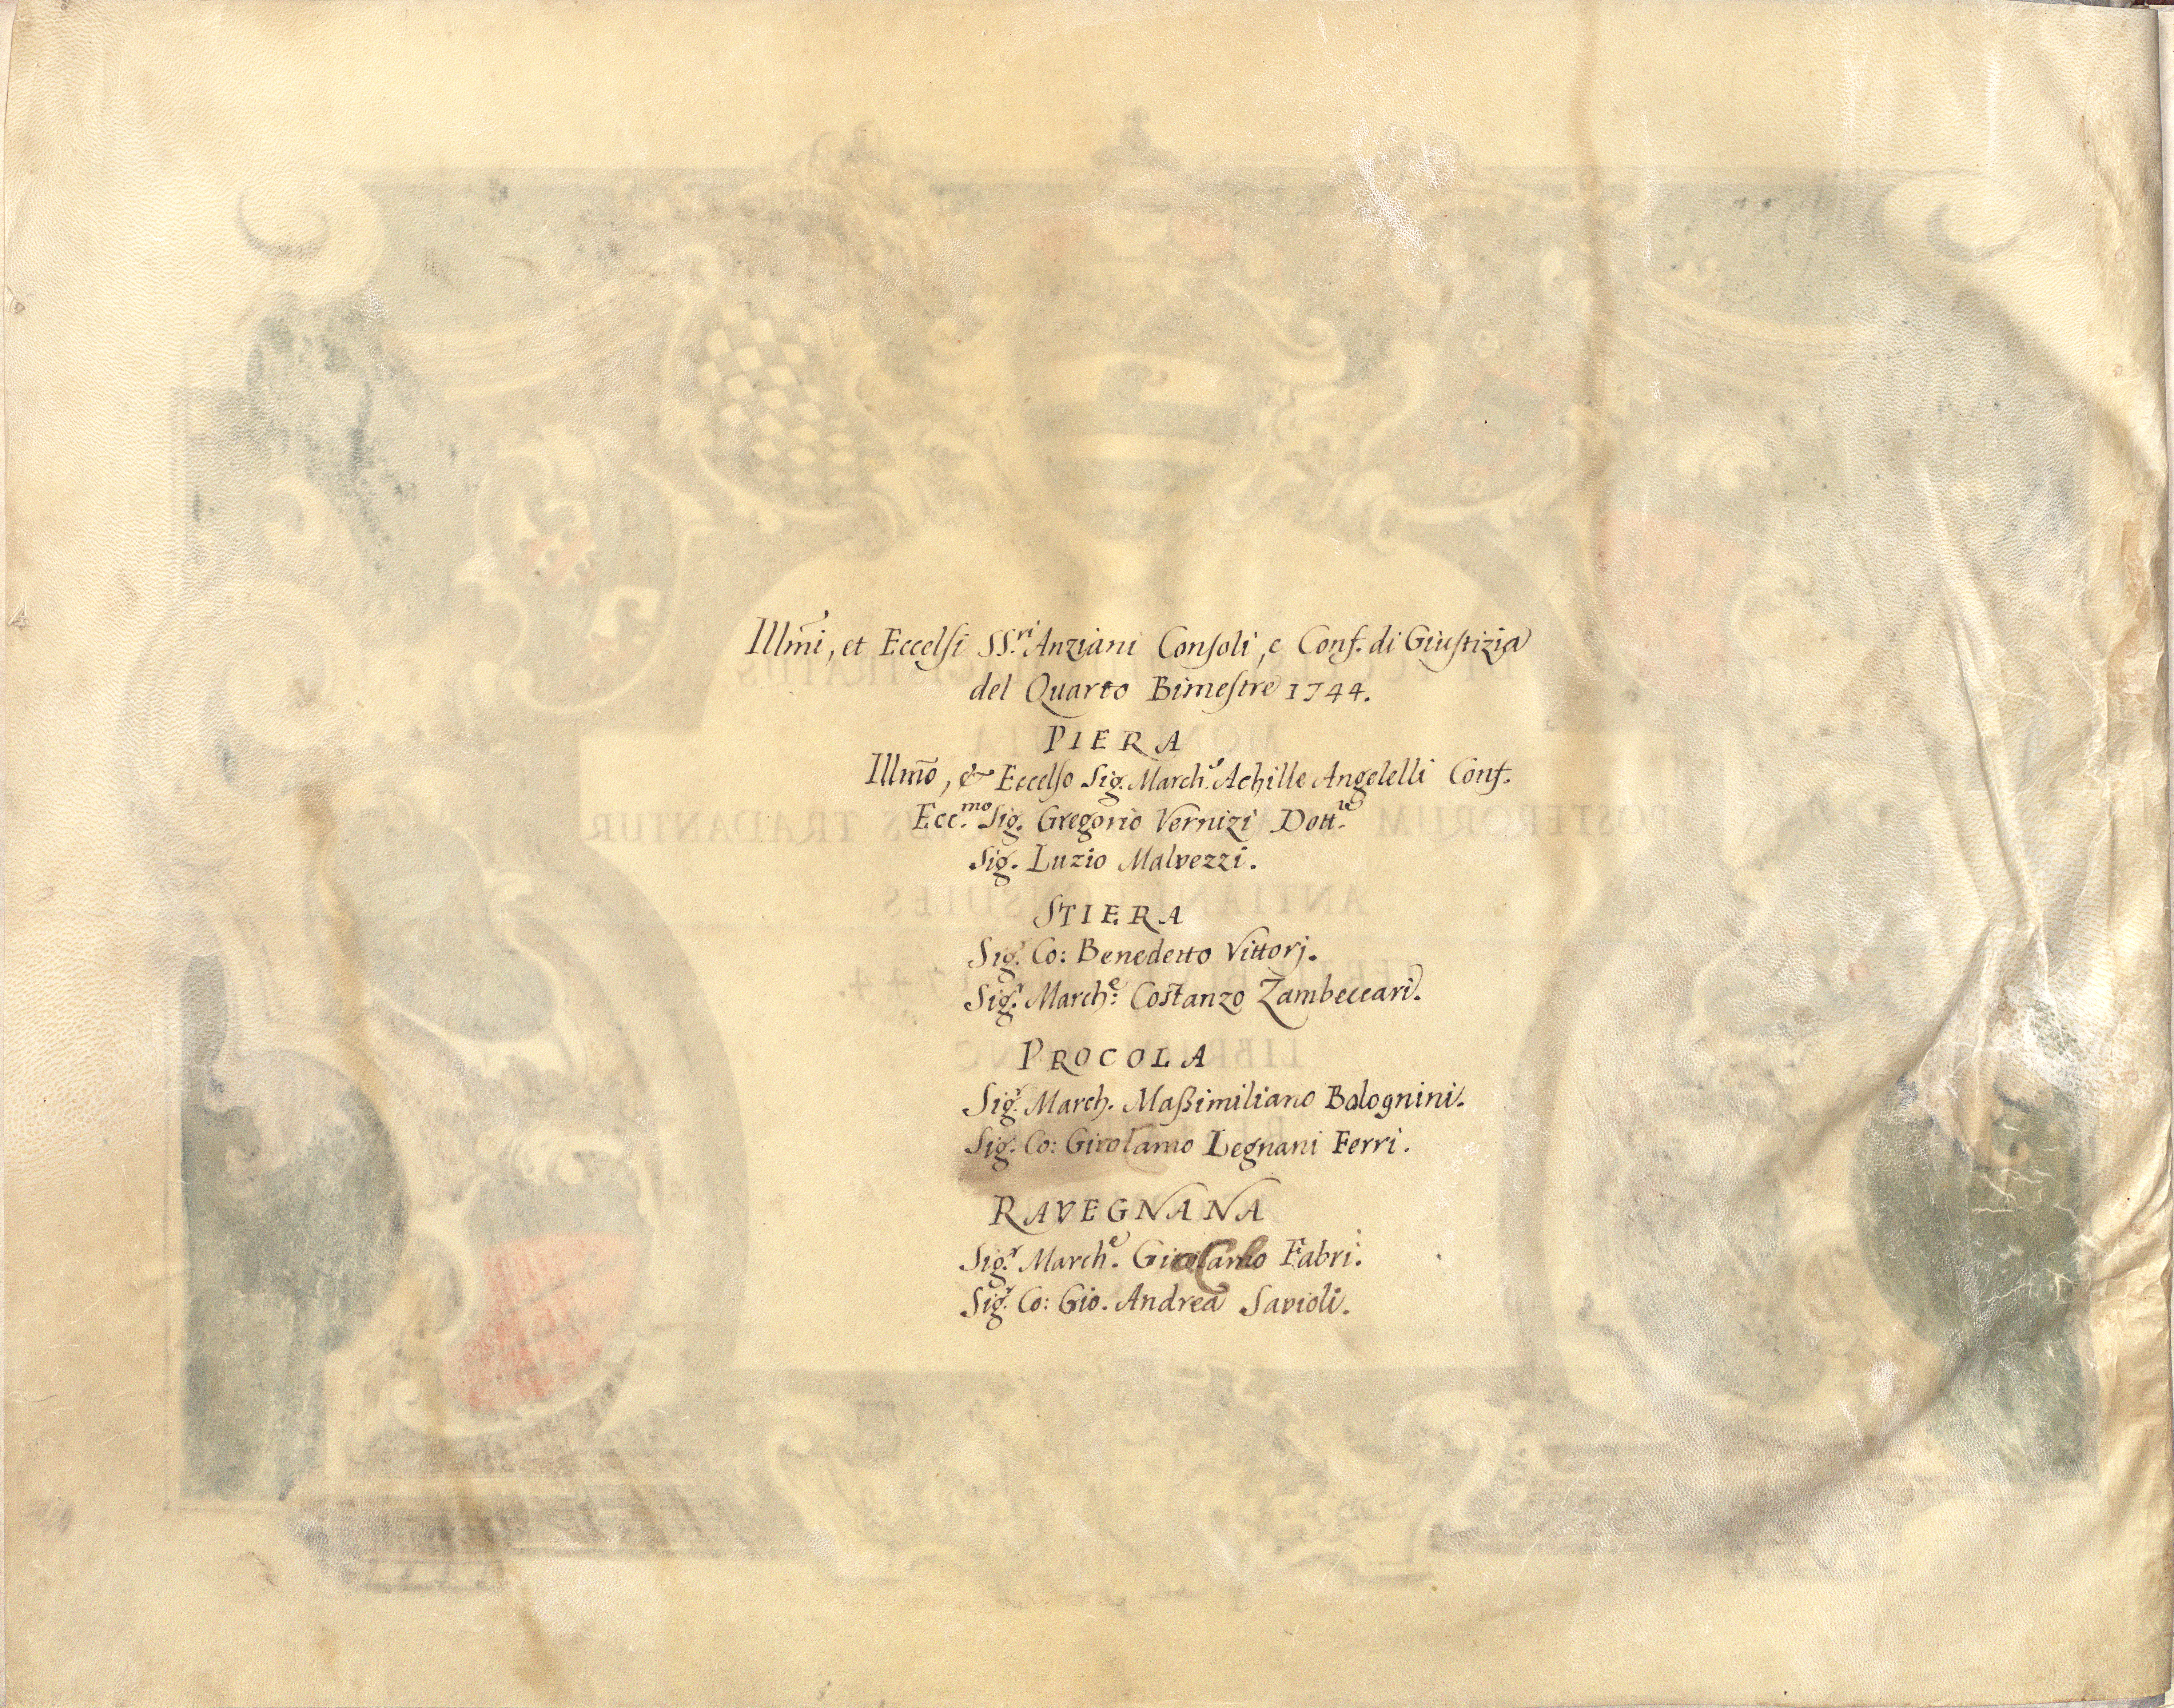 Illm̃i, et Eccelsi SS.ri Anziani Consoli, e Conf. di Giustizia
del Quarto Bimestre 1744.
PIERA
Illm̃o, & Eccelso Sig. March.e Achille Angelelli Conf.
Ecc.mo Sig. Gregorio Vernizi Dott.re
Sig. Luzio Malvezzi.
STIERA
Sig.r Co: Benedetto Vittorj.
Sig.r March.e: Costanzo Zambeccari.
PROCOLA
Sig.r March. Maßimiliano Bolognini.
Sig. Co: Girolamo Legnani Ferri.
RAVEGNANA
Sig.r March.e Carlo Fabri.
Sig.r Co: Gio. Andrea Savioli.